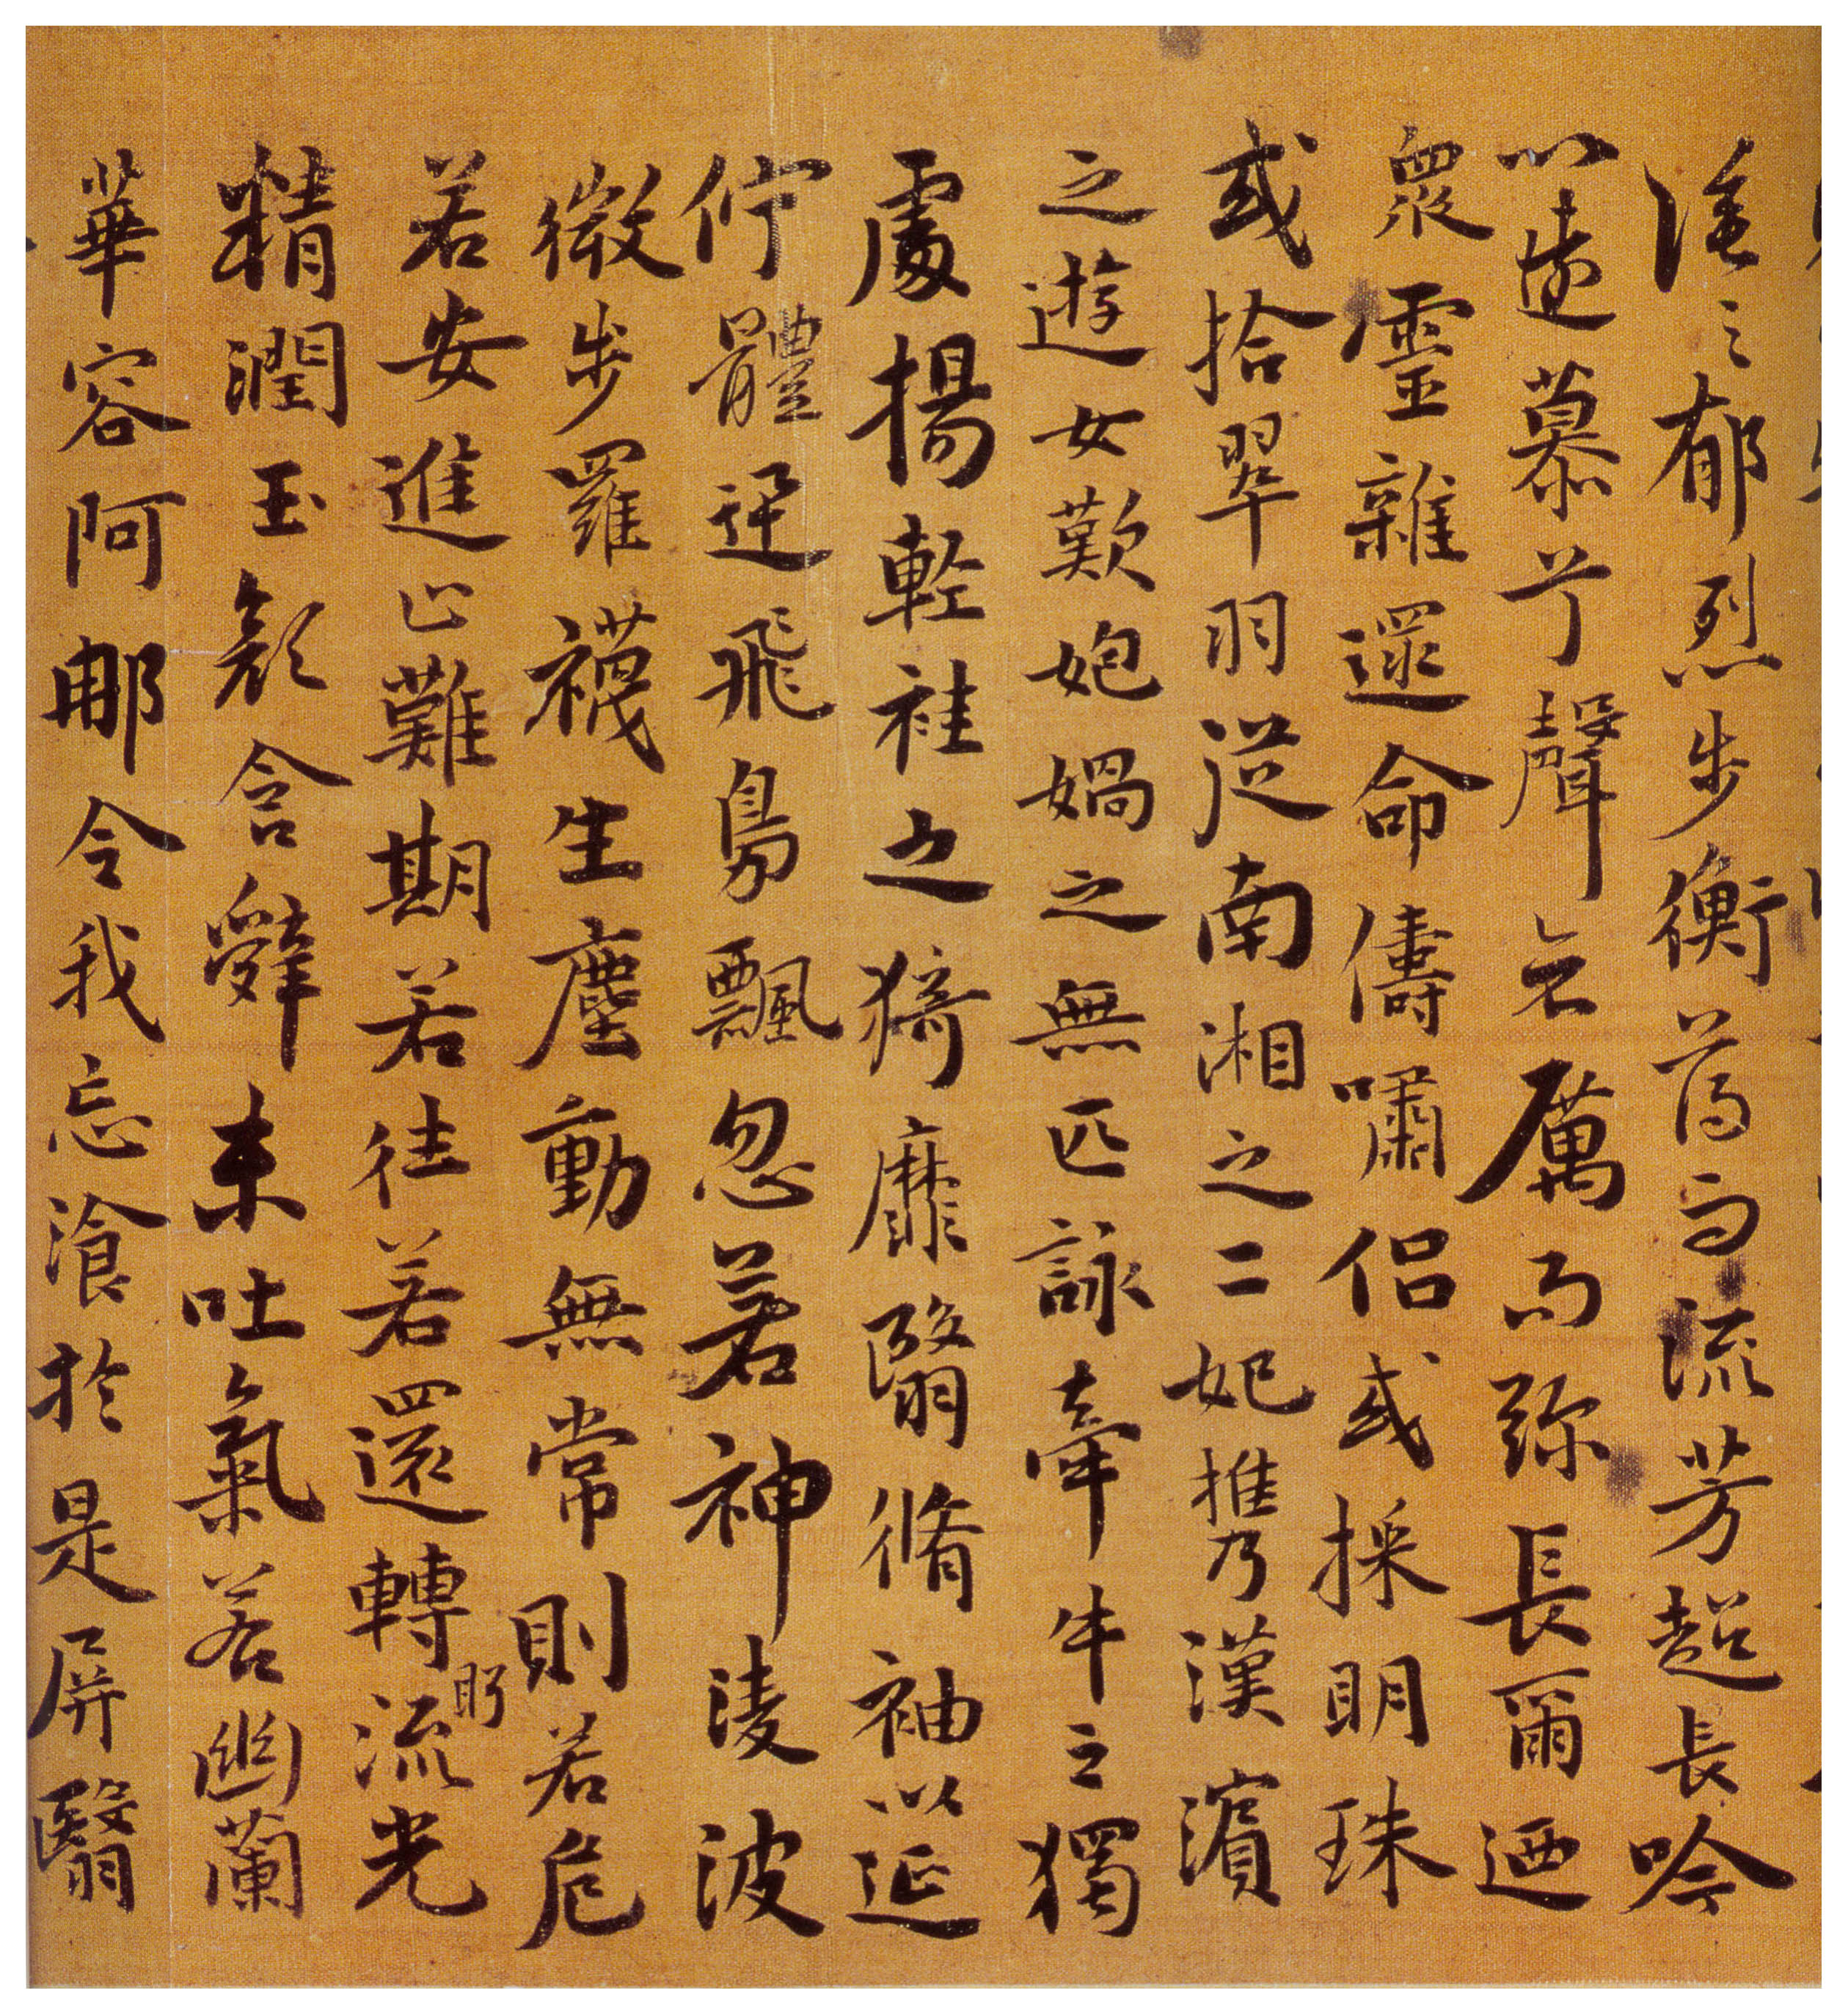 塗之郁烈步衡薄而流芳超長吟
以遠慕兮聲哀厲而弥長爾迺
衆靈雜遝命儔嘯侶或採明珠
或拾翠羽從南湘之二妃携漢濱
之遊女歎㚿媧之無匹詠牽牛之獨
處揚輕袿之猗靡翳脩袖以延
佇體迅飛鳧飄忽若神淩波
微步羅襪生塵動無常則若危
若安進止難期若往若還轉眄流光
精潤玉顏含辭未吐氣若幽蘭
華容阿那令我忘湌於是屏翳